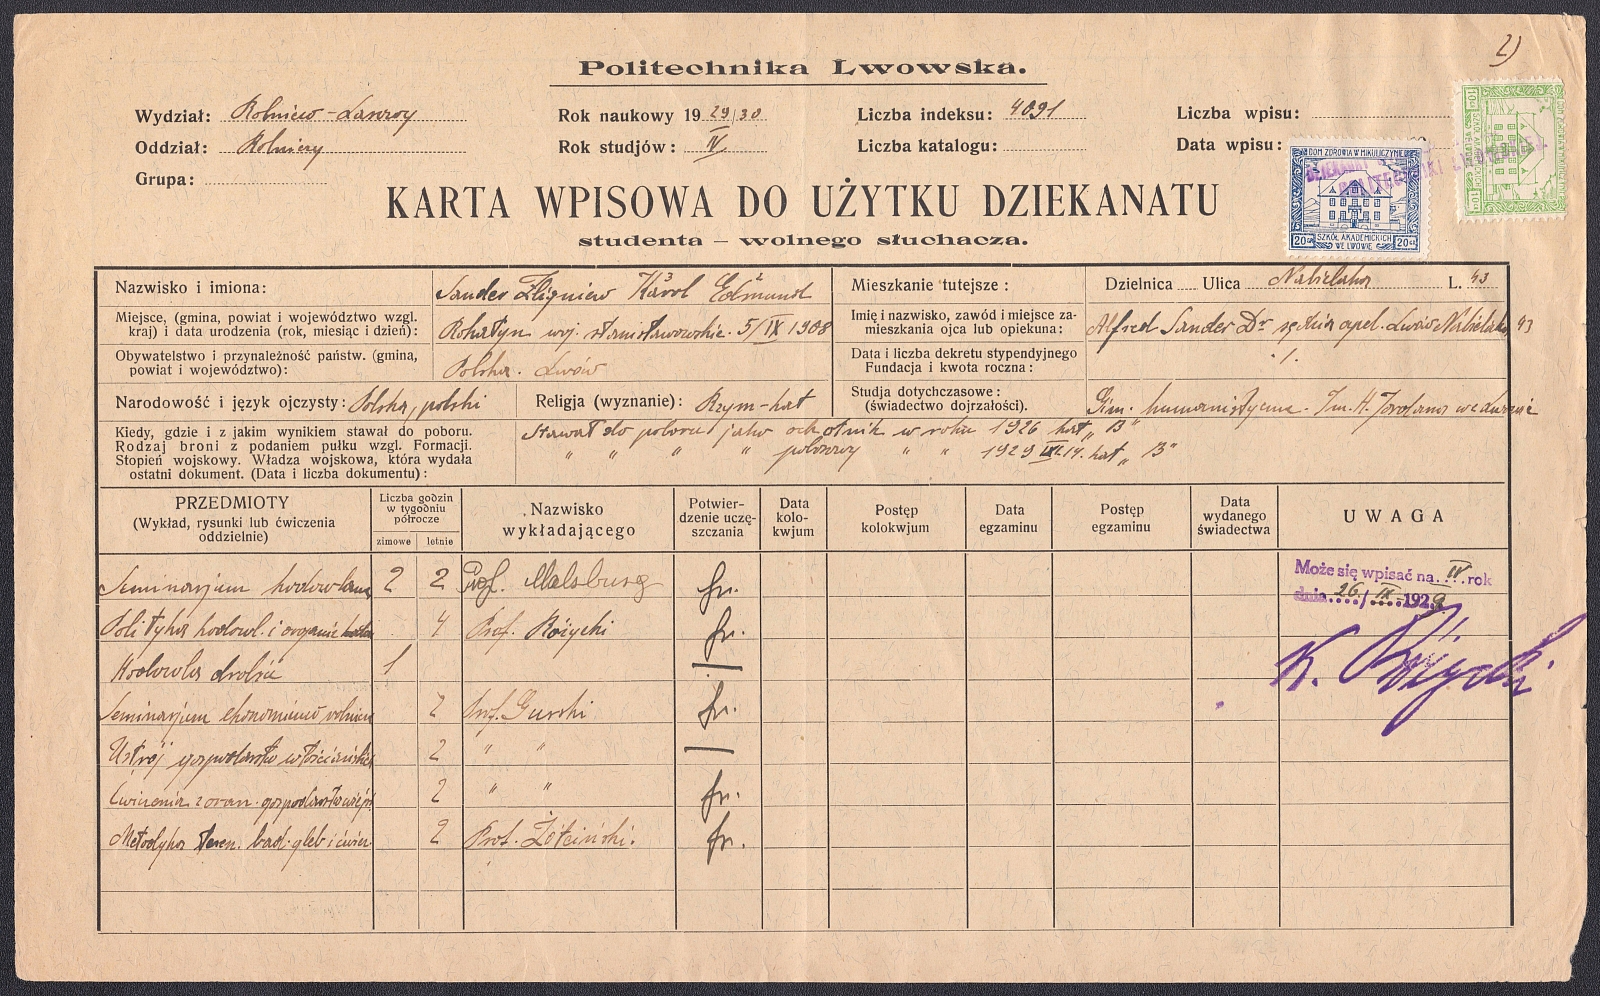 2)
Politechnika Lwowska.
Wydział: Rolniczo-Lasowy Rok naukowy 19 29/30 Liczba indeksu: 4091 Liczba wpisu:
Oddział: Rolniczy Rok studjów: IV Liczba katalogu: Data wpisu:
Grupa:
KARTA WPISOWA DO UŻYTKU DZIEKANATU
studenta – wolnego słuchacza.
DOM ZDROWIA W MIKULICZYNIE
SZKÓŁ AKADEMICKICH
WE LWOWIE
20 GR 20 GR
Nazwisko i imiona: Sander Zbigniew Karol Edmund
3 2
Mieszkanie tutejsze: Dzielnica Ulica Nabielaka L. 43
Miejsce, (gmina, powiat i województwo wzgl. kraj) i data urodzenia (rok, miesiąc i dzień): Rohatyn woj. stanisławowskie. 5/IX 1908
Imię i nazwisko, zawód i miejsce zamieszkania ojca lub opiekuna: Alfred Sander Dr sędzia apel. Lwów Nabielaka 43
Obywatelstwo i przynależność państw. (gmina, powiat i województwo): Polska. Lwów
Data i liczba dekretu stypendyjnego
Fundacja i kwota roczna: ./.
Narodowość i język ojczysty: Polska, polski Religja (wyznanie): Rzym-kat
Studja dotychczasowe: (świadectwo dojrzałości). Gim. humanistyczne. Im. H. Jordana we Lwowie
Kiedy, gdzie i z jakim wynikiem stawał do poboru.
Rodzaj broni z podaniem pułku wzgl. Formacji.
Stopień wojskowy. Władza wojskowa, która wydała
ostatni dokument. (Data i liczba dokumentu):
Stawał do poboru jako ochotnik w roku 1926 kat „B"
" " " " poborowy " " 1929 kat „B"
PRZEDMIOTY
(Wykład, rysunki lub ćwiczenia oddzielnie)
Liczba godzin w tygodniu półrocze
zimowe letnie
Nazwisko wykładającego
Potwierdzenie uczęszczania
Data kolokwjum
Postęp kolokwjum
Data egzaminu
Postęp egzaminu
Data wydanego świadectwa
UWAGA
Seminarjum hodowlane 2 2 Prof. Malsburg
Polityka hodowl. i organiz. 4 Prof. Różycki
Hodowla drobiu 1
Seminarjum ekonomiczno rolnicze 2 Prof. Gurski
Ustrój gospodarstw włościańskich 2 " "
Ćwiczenia z organ. gospodarstw wiejs. 2 " "
Metodyka teren. bad. gleb i ćwicz. 2 Prof. Żółciński.
Może się wpisać na IV rok
dnia 26/IX 1929
K. Różycki